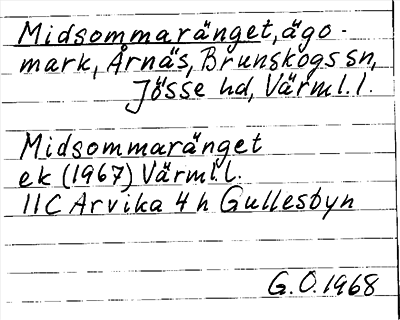 Midsommaränget, ägo-
mark, Årnäs, Brunskogs sn,
Jösse hd, Värml.l.
Midsommaränget
ek (1967) Värml.l.
11C Arvika 4h Gullesbyn
G.O. 1968